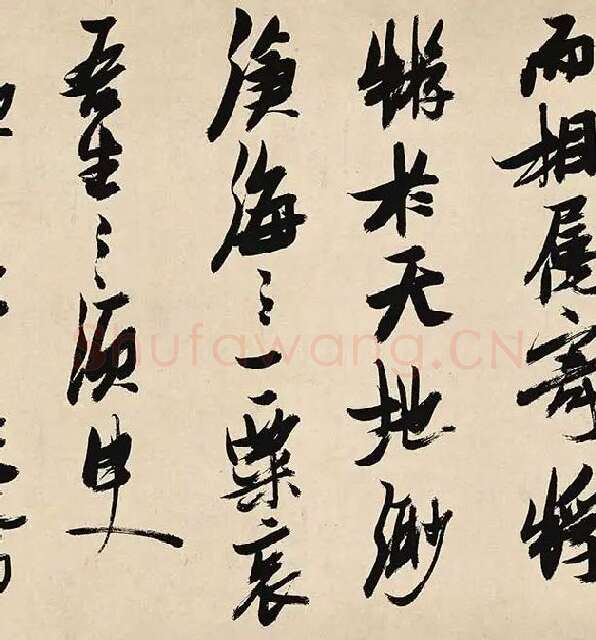 而相屬寄蜉
蝣於天地渺
滄海之一粟哀
吾生之須臾
Shufawang.CN